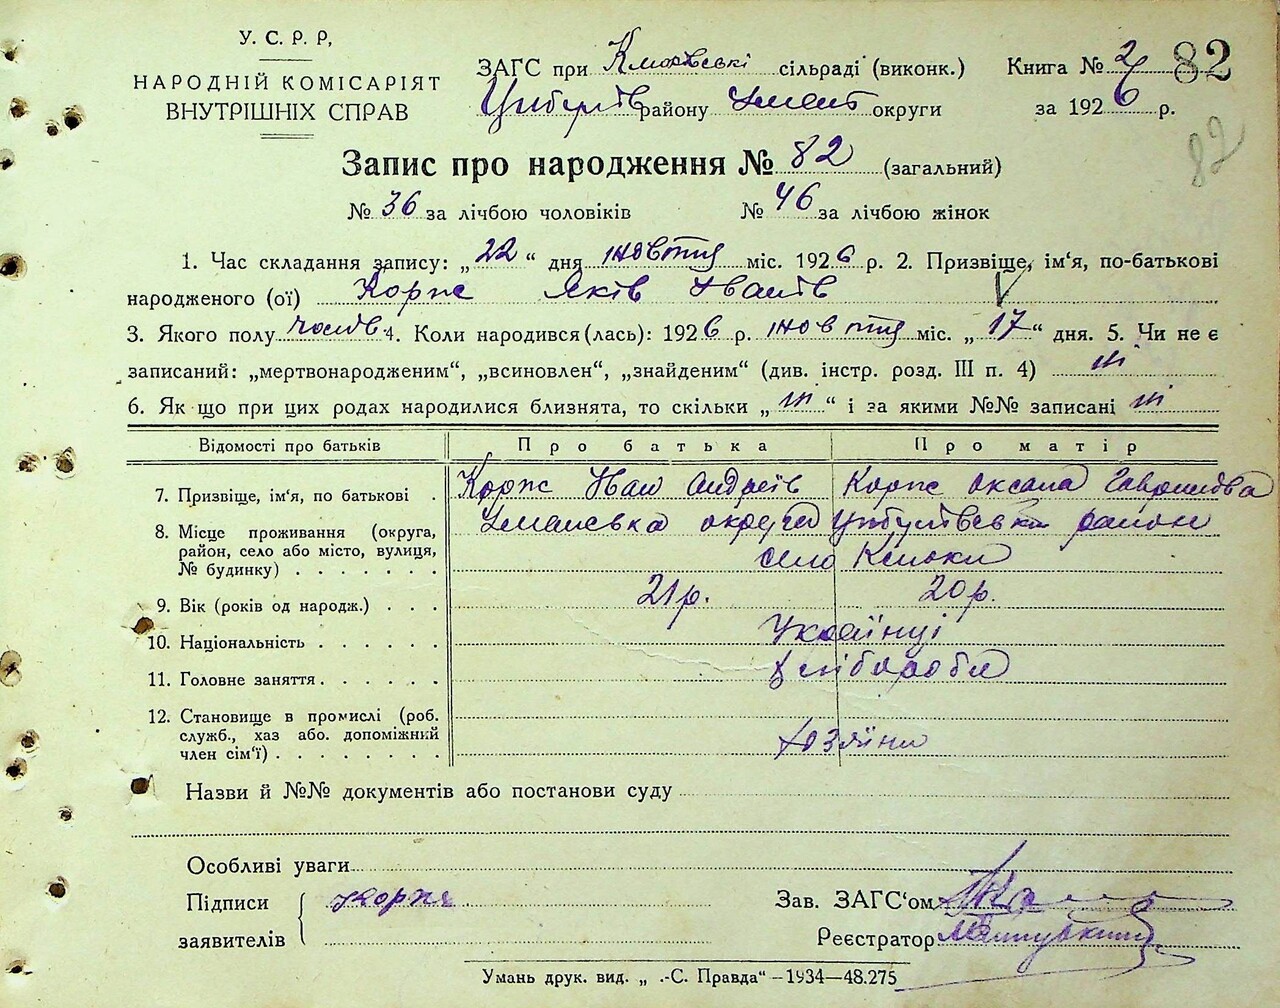 У. С. Р. Р,
НАРОДНІЙ КОМІСАРІЯТ
ВНУТРІШНІХ СПРАВ
ЗАГС при сільраді (виконк.) Книга № 2 82
району округи за 1926 р.
82
Запис про народження № 82 (загальний)
№ 36 за лічбою чоловіків № 46 за лічбою жінок
1. Час складання запису: „22“ дня жовтня міс. 1926 р. 2. Призвіще, ім'я, по-батькові
народженого (ої) Корж Яків Іванів
3. Якого полу чолов 4. Коли народився (лась): 1926 р. жовтня міс. „17“ дня. 5. Чи не є
записаний: „мертвонародженим“, „всиновлен“, „знайденим“ (див. інстр. розд. III п. 4) ні
6. Як що при цих родах народилися близнята, то скільки „ні“ і за якими №№ записані ні
Відомості про батьків Про батька Про матір
7. Призвіще, ім'я, по батькові Корж Іван Андріїв Корж Оксана Гаврилова
8. Місце проживання (округа, район, село або місто, вулиця, № будинку) Уманська округа район
село
9. Вік (років од народж.) 21 р. 20 р.
10. Національність Українці
11. Головне заняття хлібороби
12. Становище в промислі (роб. служб., хаз або. допоміжний член сім'ї) хозяїни
Назви й №№ документів або постанови суду
Особливі уваги
Підписи заявителів Корж
Зав. ЗАГС'ом
Реєстратор
Умань друк. вид. „ .-С. Правда“ —1934—48.275